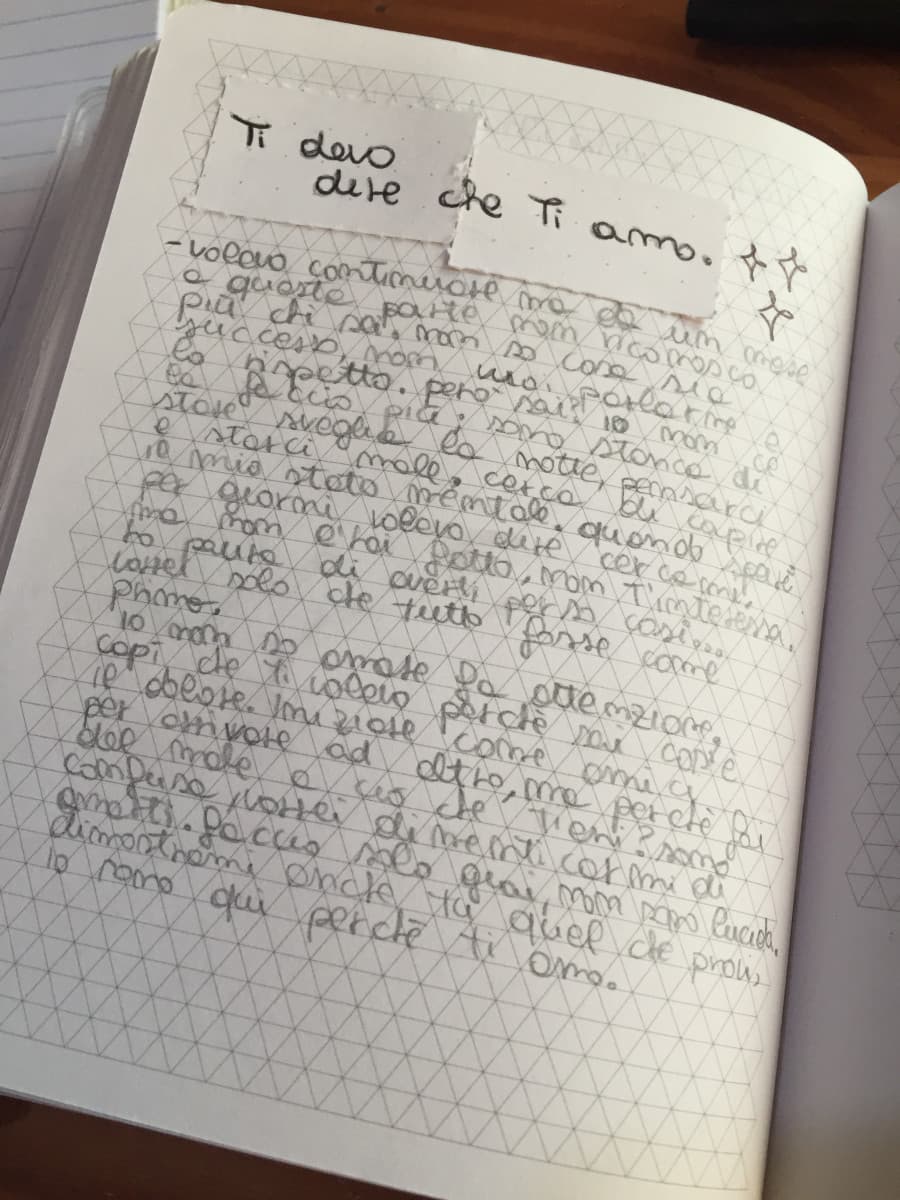 Ti devo
dire che Ti amo.
-volevo continuare ma da un mese
a queste parte non riconosco
più chi sei. non so cosa sia
successo, non vuoi parlarne e
lo rispetto. però sai? io non ce
la faccio più. sono stanca di
stare sveglia la notte, pensarci
e starci male. cerca di capire
il mio stato mentale. quando sparì
per giorni volevo dire cercami,
ma non l'hai fatto, non t'interessa.
ho paura di averti perso così...
vorrei solo che tutto fosse come
prima.
io non so amare da attenzione,
capì che ti volevo perchè sai com'è
il dolore. Iniziare come amici
per arrivare ad altro, ma perchè fai
del male a ciò che tieni? sono
confusa, vorrei dimenticarmi di
amarti. faccio solo guai, non sono lucida.
dimostrami anche tu quel che provi,
io sono qui perchè ti
amo.